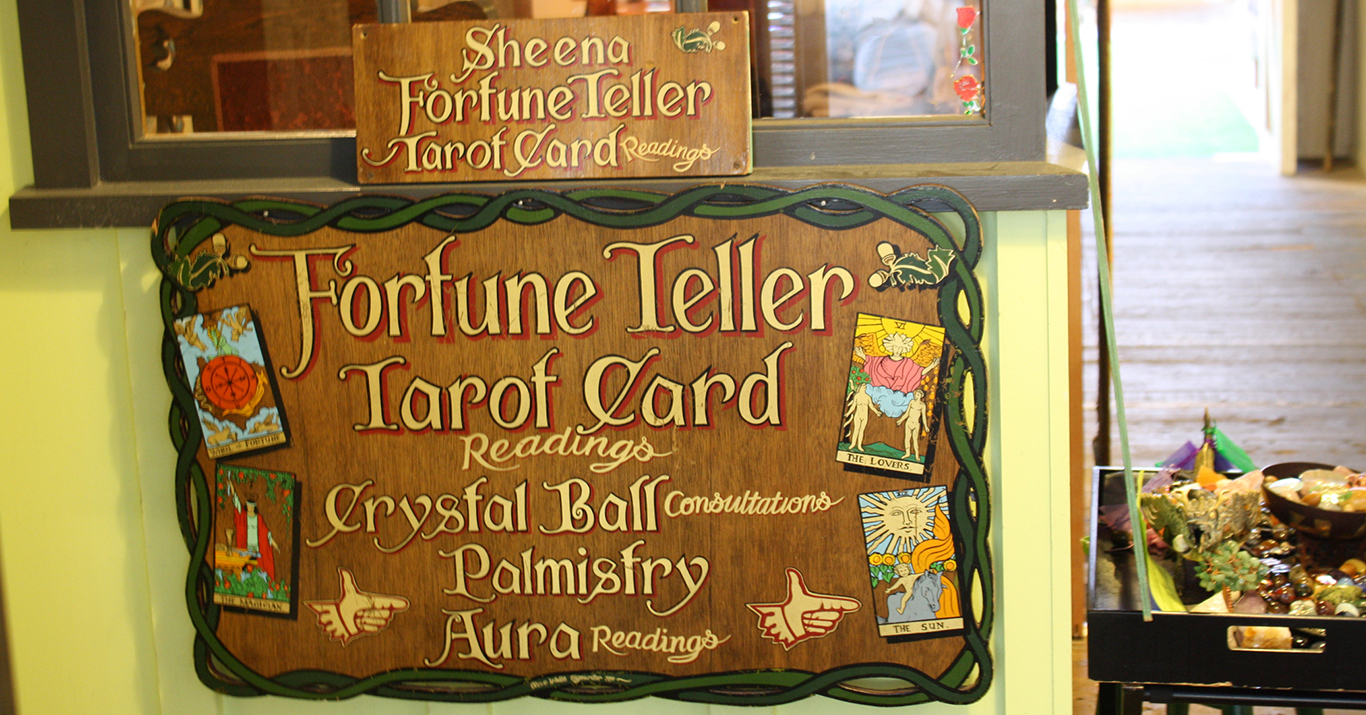 Sheena
Fortune Teller
Tarot Card Readings
Fortune Teller
Tarot Card
Readings
Crystal Ball Consultations
Palmistry
Aura Readings
WHEEL of FORTUNE
VI
THE LOVERS.
THE MAGICIAN
THE SUN.